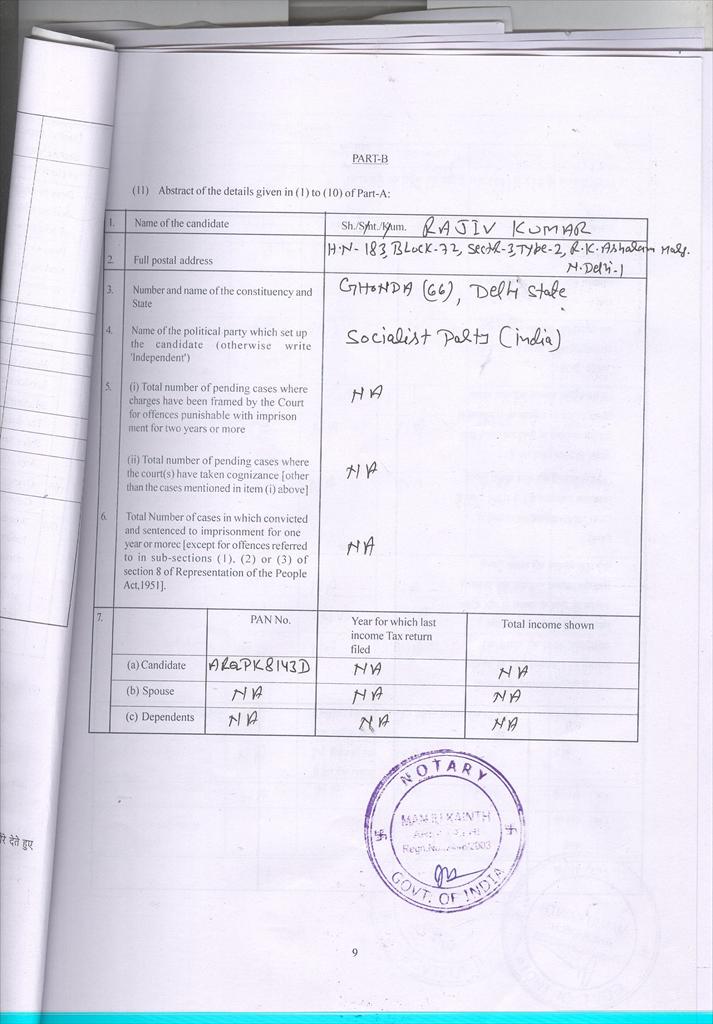 PART-B
(11) Abstract of the details given in (1) to (10) of Part-A:
1. Name of the candidate Sh./Smt./Kum. RAJIV KUMAR
2. Full postal address H.N-183, BLOCK-72, Sector-3, Type-2, R.K. Ashalam Malg.
N.Delhi-1
3. Number and name of the constituency and
State
GHONDA (66), Delhi State
4. Name of the political party which set up
the candidate (otherwise write
'Independent')
Socialist Party (india)
5. (i) Total number of pending cases where
charges have been framed by the Court
for offences punishable with imprison
ment for two years or more
NA
(ii) Total number of pending cases where
the court(s) have taken cognizance [other
than the cases mentioned in item (i) above]
NA
6. Total Number of cases in which convicted
and sentenced to imprisonment for one
year or morec [except for offences referred
to in sub-sections (1), (2) or (3) of
section 8 of Representation of the People
Act,1951].
NA
7. PAN No. Year for which last
income Tax return
filed
Total income shown
(a) Candidate ARQPK8143D NA NA
(b) Spouse NA NA NA
(c) Dependents NA NA NA
NOTARY
KAINTH
Regn.No.
2003
GOVT. OF INDIA
रे देते हुए
9